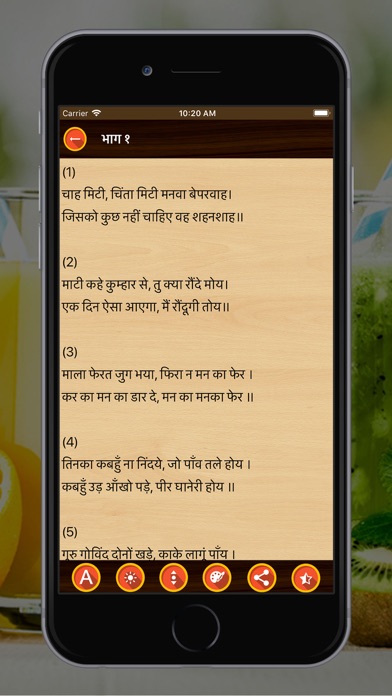 Carrier 10:20 AM
भाग १
(1)
चाह मिटी, चिंता मिटी मनवा बेपरवाह।
जिसको कुछ नहीं चाहिए वह शहनशाह॥
(2)
माटी कहे कुम्हार से, तु क्या रौंदे मोय।
एक दिन ऐसा आएगा, मैं रौंदूगी तोय॥
(3)
माला फेरत जुग भया, फिरा न मन का फेर ।
कर का मन का डार दे, मन का मनका फेर ॥
(4)
तिनका कबहुँ ना निंदये, जो पाँव तले होय ।
कबहुँ उड़ आँखो पड़े, पीर घानेरी होय ॥
(5)
गुरु गोविंद दोनों खड़े, काके लागूं पाँय ।
A